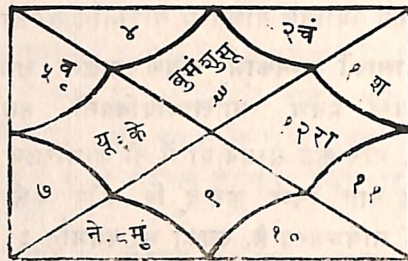 ४
२चं
५बृ
बुमंशुसू
३
१श
यू६के
१२रा
७
९
११
ने८मुं
१०